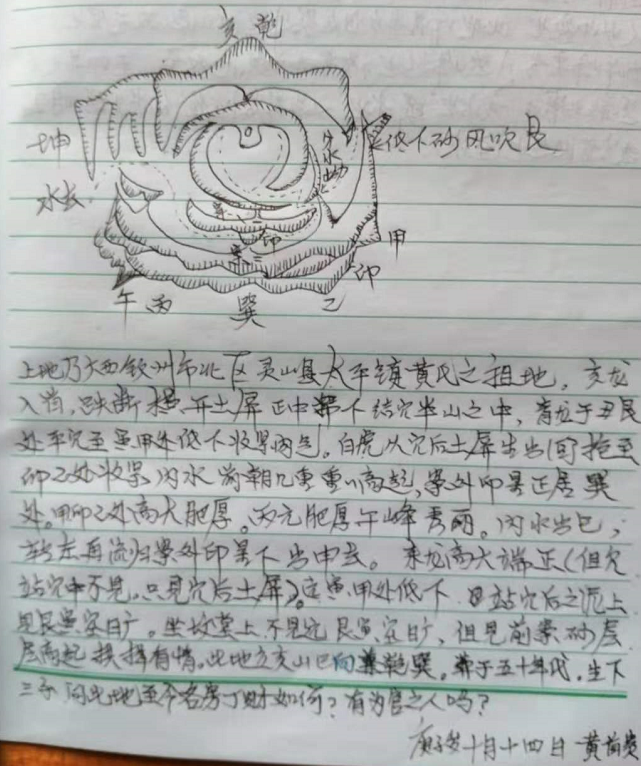 亥 乾
坤
低下砂 风吹艮
水去
案一
印
案二
甲
卯
午 丙 巽 乙
上地乃广西钦州市北区灵山县太平镇黄氏之祖地，亥龙
入首，跌断 开土屏 正中 下结穴半山之中，青龙于丑艮
处平完至寅甲处低下收 内气。白虎从穴后土屏生出回抱至
卯乙处收 内水 前朝几重重高起，案外印星正居巽
处。甲卯乙处高大肥厚。丙 肥厚午峰秀丽。内水出 ，
转左再流归案外印星下当中去。来龙高大端正（但
站穴中不见，只见穴后土屏）。 甲处低下 站穴后之 上
见艮寅空旷。坐坟堂上不见 艮寅空旷，但见前案砂层
层高起 有情，此地立亥山巳向兼乾巽。葬于五十年代，生下
三子 问此地至今各房丁财如何？有为官之人吗？
庚子岁十月十四日 黄